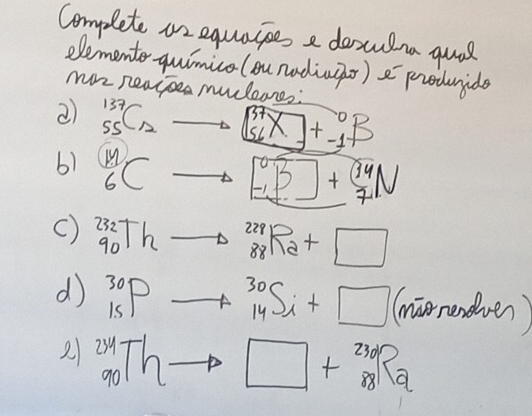 Complete as equações e descubra qual
elemento químico (ou radiação) é produzido
nas reações nucleares:
a) ¹³⁷₅₅Cs → ¹³⁷₅₆X + ⁰₋₁β
b) ¹⁴₆C → ⁰₋₁β + ¹⁴₇N
c) ²³²₉₀Th → ²²⁸₈₈Ra + □
d) ³⁰₁₅P → ³⁰₁₄Si + □ (não resolver)
e) ²³⁴₉₀Th → □ + ²³⁰₈₈Ra